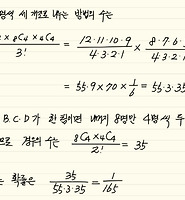 명씩 세 개조로 나누는 방법의 수는
× 8C4 × 4C4 / 3! = 12·11·10·9 / 4·3·2·1 × 8·7·6· / 4·3·2·
= 55·9×70×1/6 = 55·3·35
B.C.D가 한 팀이면 나머지 8명만 4명씩 두
므로 경우의 수는 8C4×4C4 / 2! = 35
는 확률은 35 / 55·3·35 = 1/165